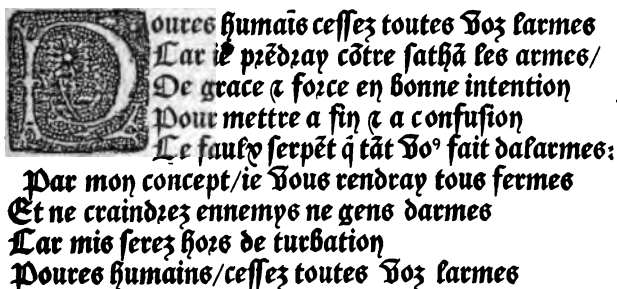 Poures humaīs ceſſez toutes voz larmes
Car ie prēdray cōtre ſathā les armes/
De grace ⁊ force en bonne intention
Pour mettre a fin ⁊ a confuſion
Le faulx ſerpēt q̄ tāt voꝰ fait dalarmes:
Par mon concept/ie vous rendray tous fermes
Et ne craindrez ennemys ne gens darmes
Car mis ſerez hors de turbation
Poures humains/ceſſez toutes voz larmes